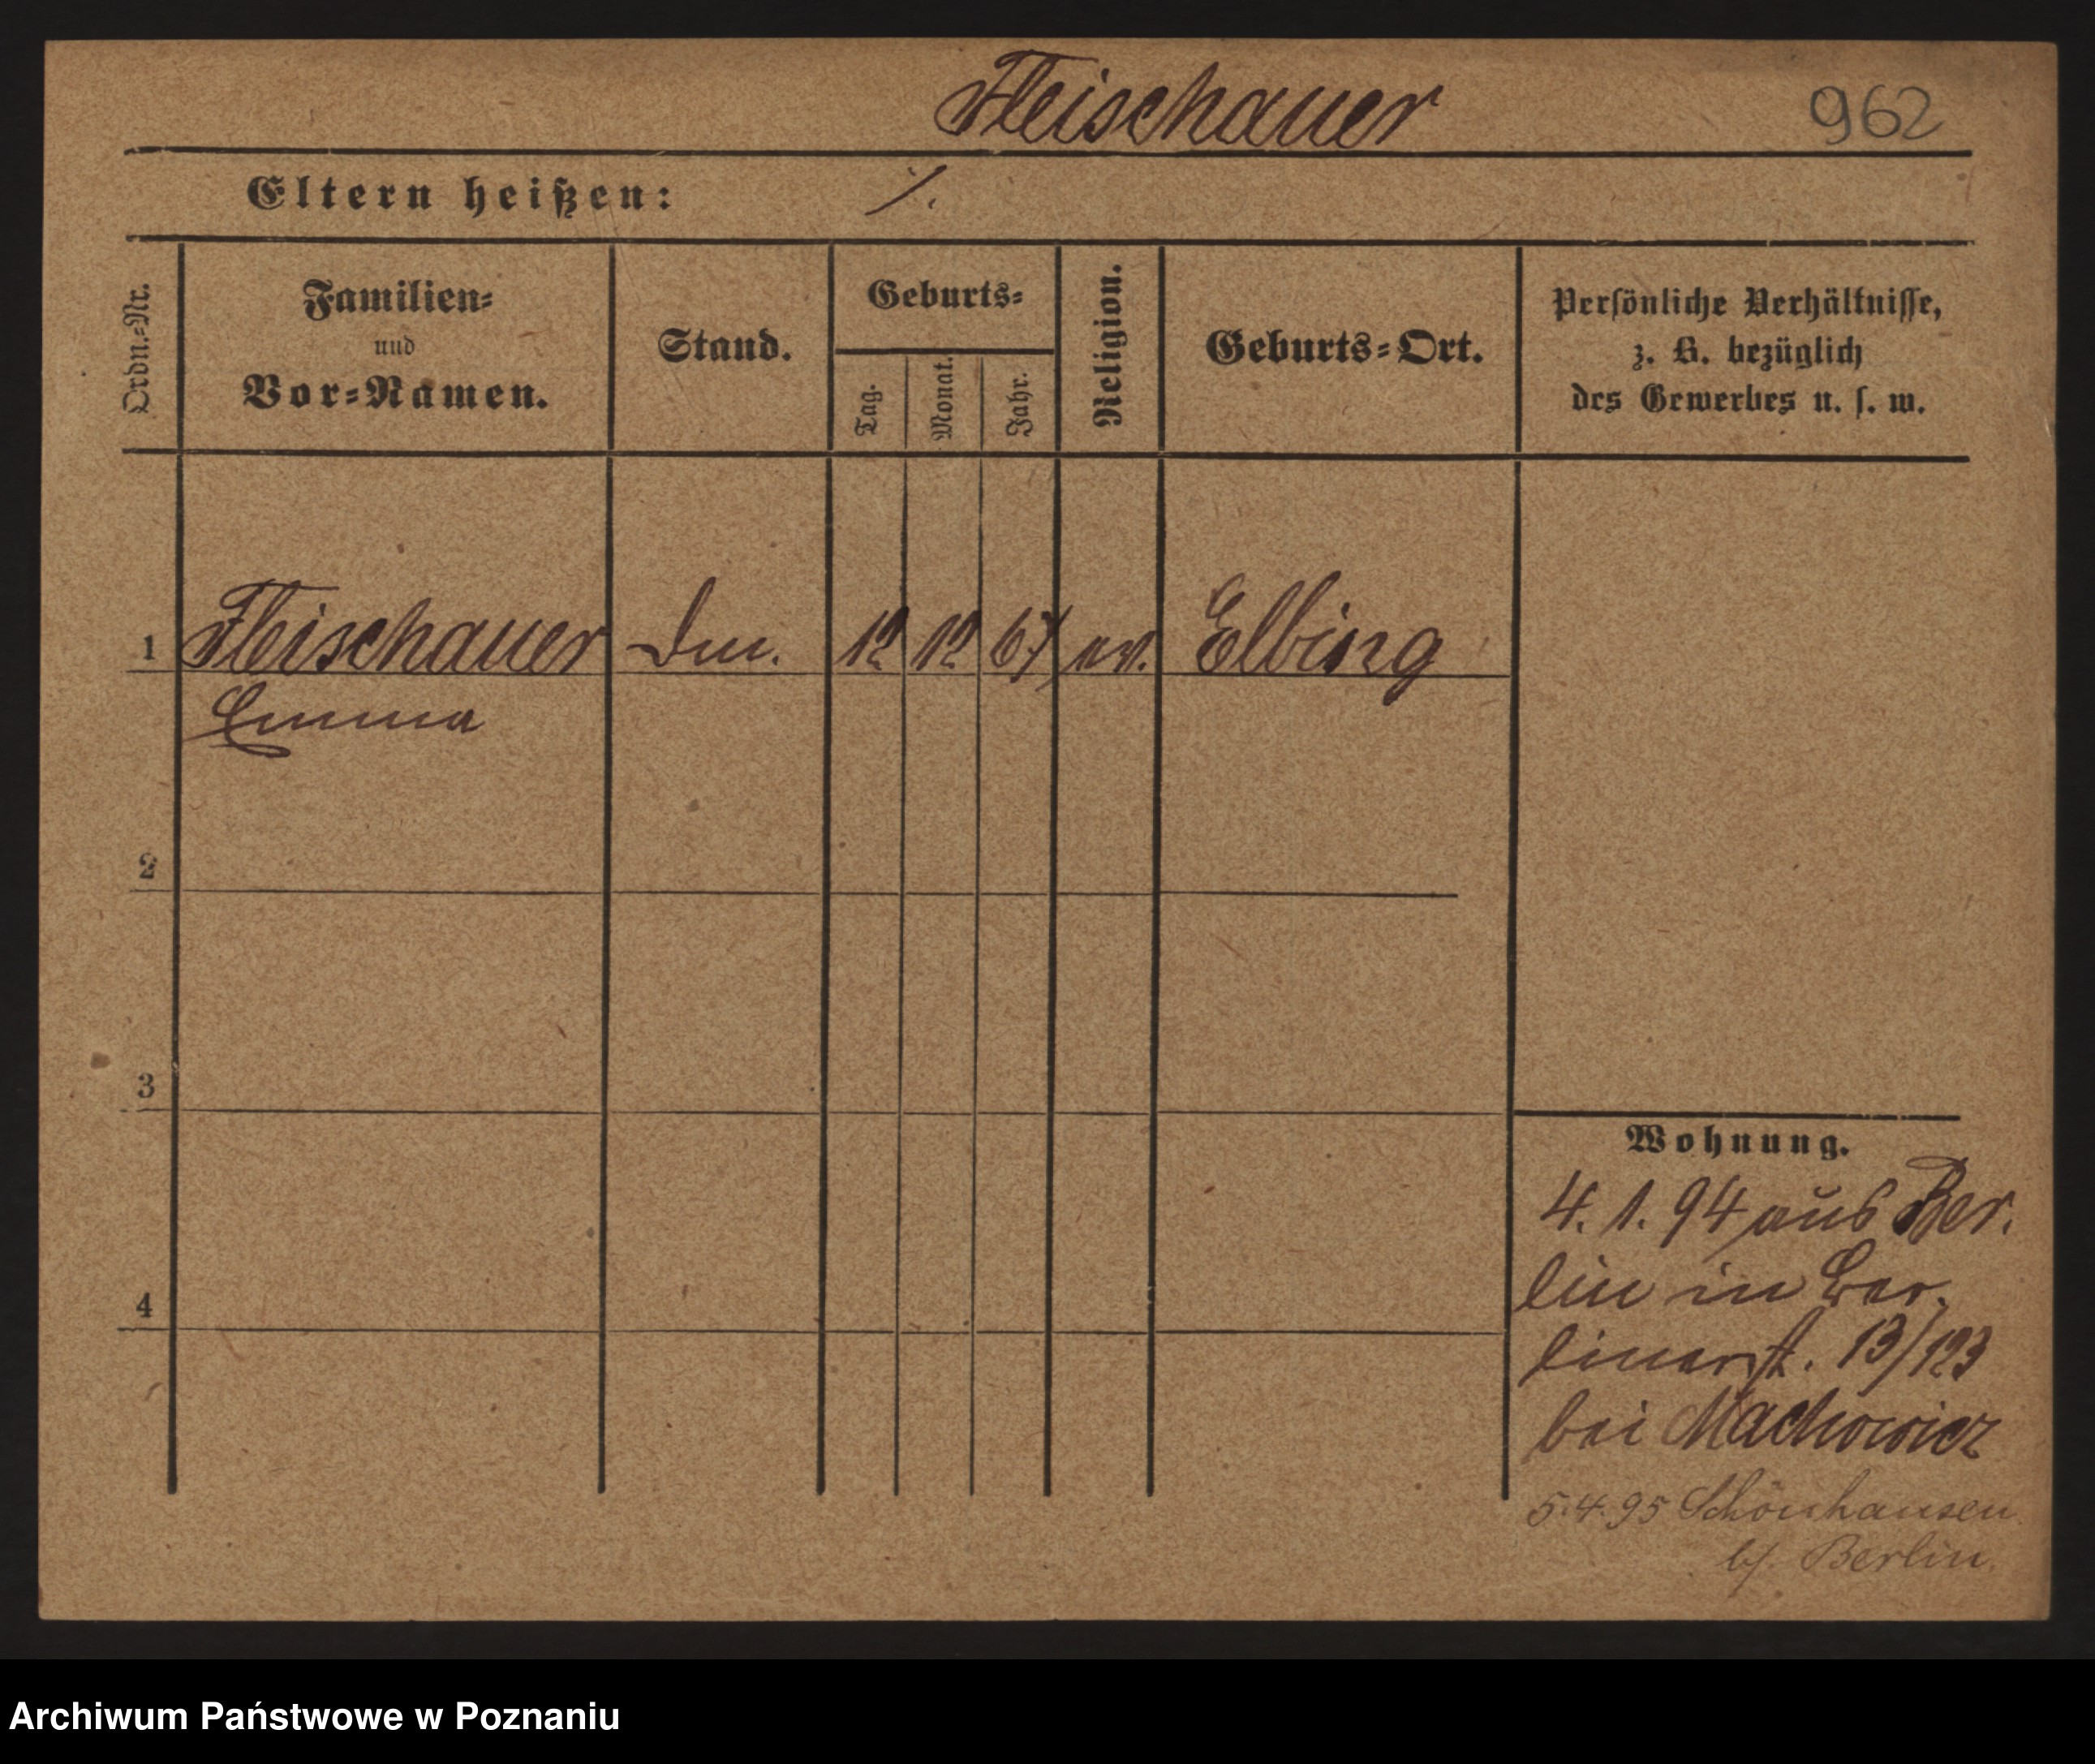 Fleischauer 962
Eltern heißen: ⁒
Ordn.-Nr.
Familien-
und
Vor-Namen.
Stand.
Geburts-
Tag.
Monat.
Jahr.
Religion.
Geburts-Ort.
Persönliche Verhältnisse,
z. B. bezüglich
des Gewerbes u. s. w.
1 Fleischauer 12 12 67 ev. Elbing
Emma
2
3
4
Wohnung.
4. 1. 94 aus Ber.
lin in Ber.
linerst. 13/123
bei Machowicz
5.4.95 Schönhausen
b/. Berlin.
Archiwum Państwowe w Poznaniu